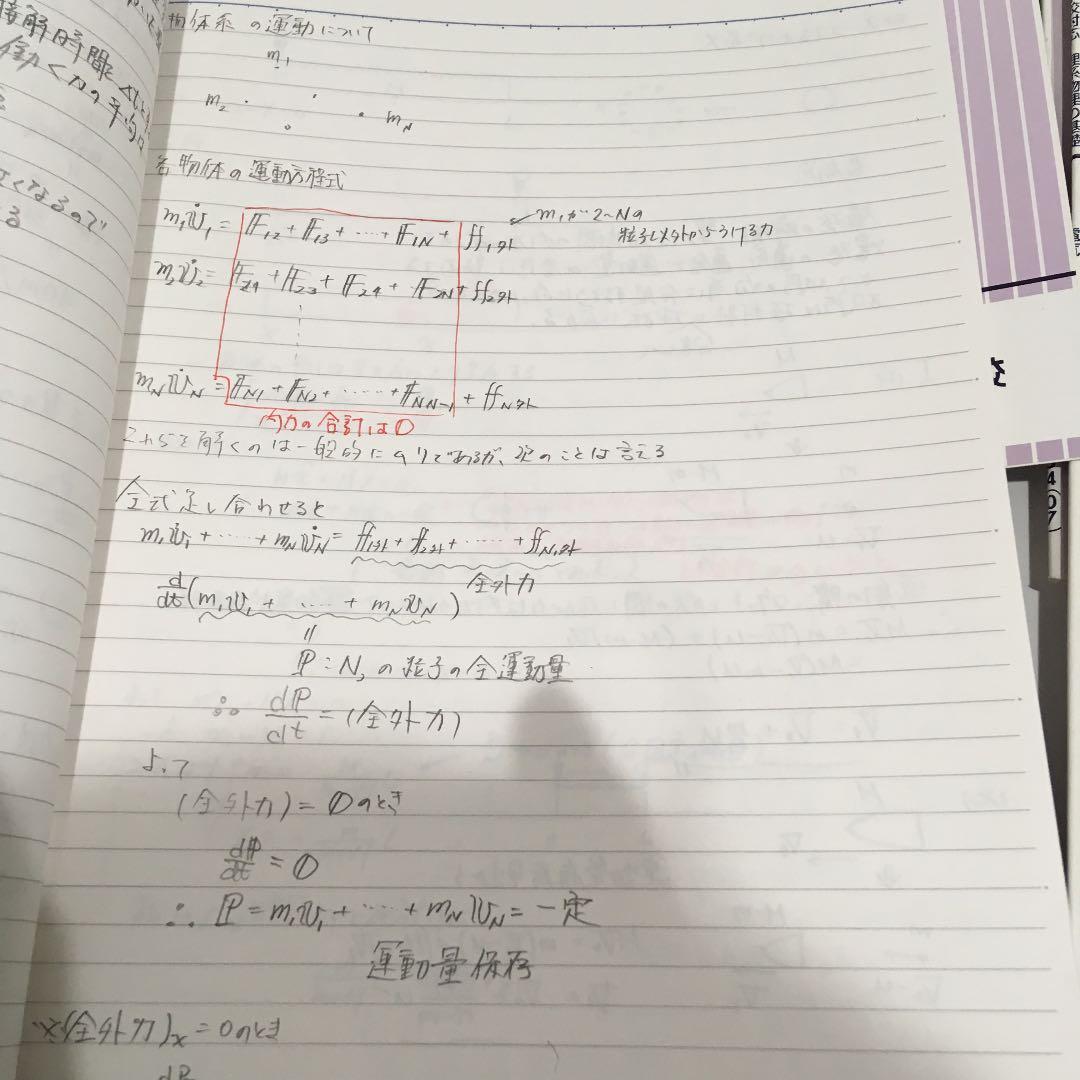 接解時間
働く力の平均は
くなるので
物体系の運動について
m₁
m₂
m_N
各物体の運動方程式
m₁v̇₁ = F₁₂ + F₁₃ + …… + F₁N + f₁外
m₁が2〜Nの
粒子以外からうける力
m₂v̇₂ = F₂₁ + F₂₃ + F₂₄ + F₂N + f₂外
m_N v̇_N = F_N1 + F_N2 + …… + F_NN-1 + f_N外
内力の合計は0
これらを解くのは一般的にムリであるが、次のことは言える
全式足し合わせると
m₁v̇₁ + …… + m_N v̇_N = f₁外 + f₂外 + …… + f_N外
全外力
d/dt(m₁v₁ + …… + m_N v_N)
〃
P : N個の粒子の全運動量
∴ dP/dt = (全外力)
よって
(全外力) = 0のとき
dP/dt = 0
∴ P = m₁v₁ + …… + m_N v_N = 一定
運動量保存
※(全外力)x = 0のとき